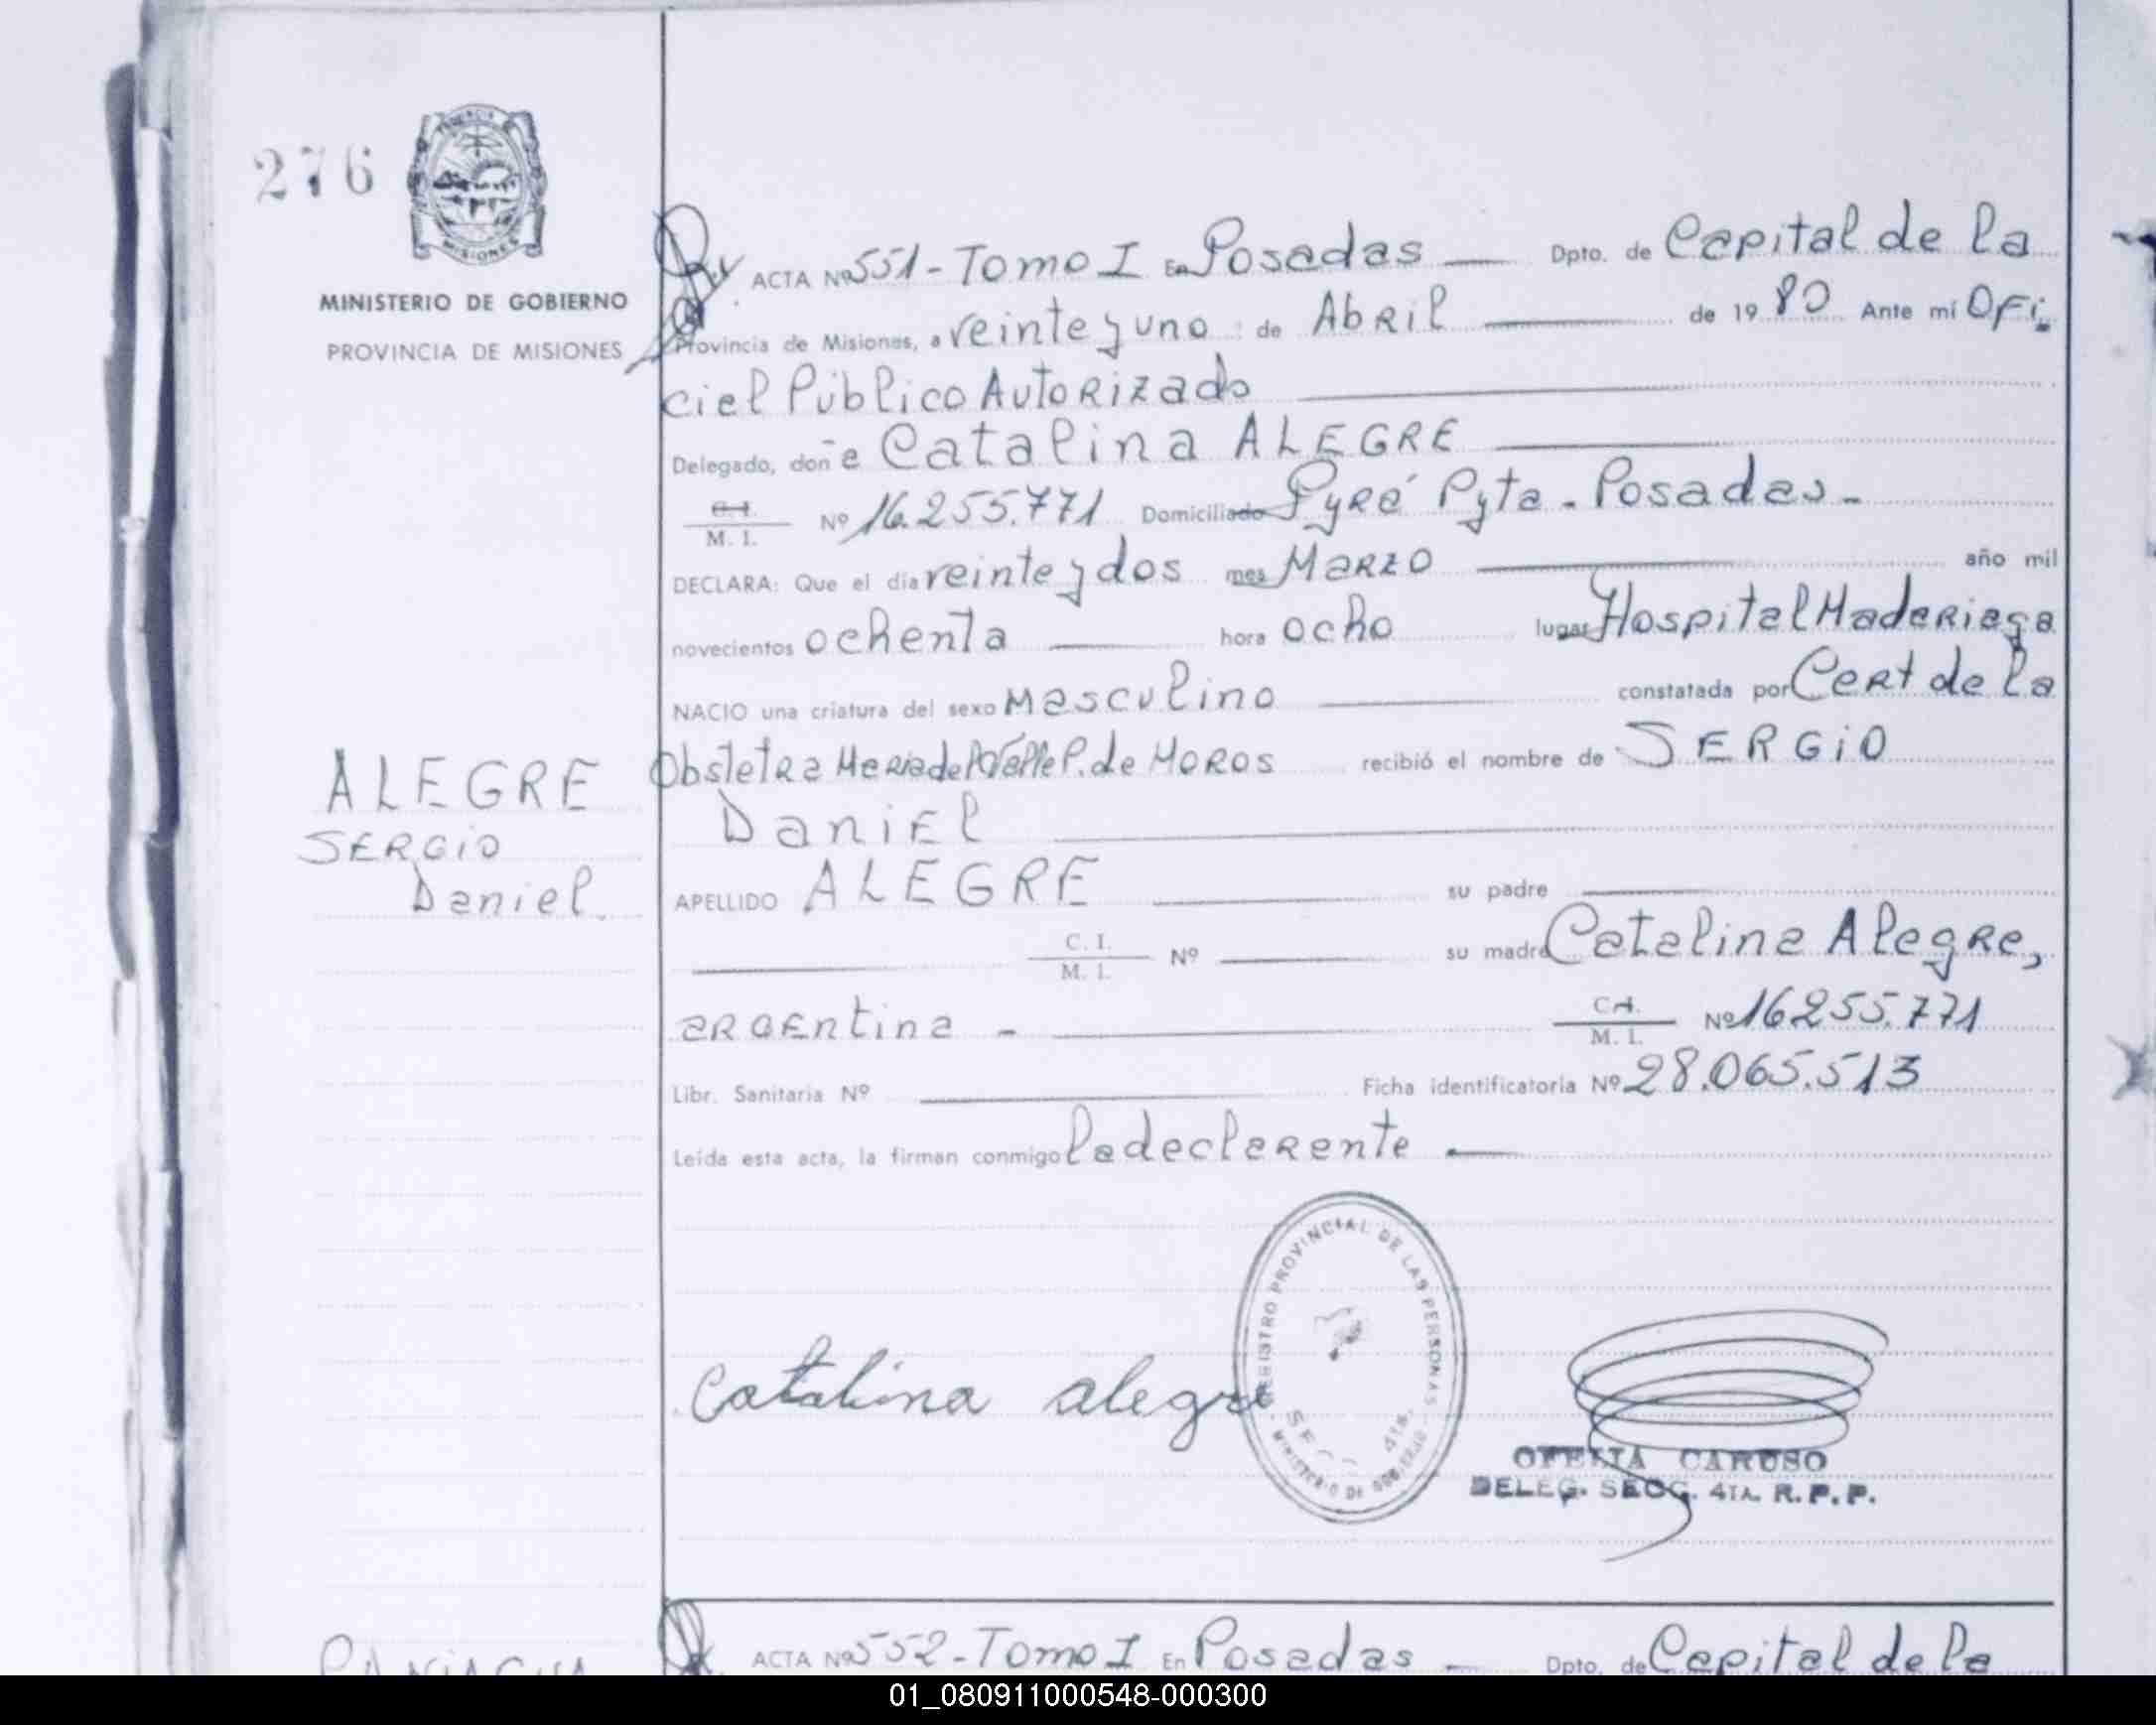 276
MISIONES
MINISTERIO DE GOBIERNO
PROVINCIA DE MISIONES
ACTA Nº 551 - Tomo I En Posadas Dpto. de Capital de la
Provincia de Misiones, a veinte y uno de Abril de 1980 Ante mi Ofi
cial Público Autorizado
Delegado, doña Catalina ALEGRE
C. I.
M. I. Nº 16.255.771 Domiciliado Pyrá Pyta - Posadas -
DECLARA: Que el día veinte y dos mes Marzo año mil
novecientos ochenta hora ocho lugar Hospital Madariaga
NACIO una criatura del sexo Masculino constatada por Cert de la
Obstetra Maria del Valle P. de Moros recibió el nombre de SERGIO
Daniel
ALEGRE
SERGIO
Daniel.
APELLIDO ALEGRE su padre
C. I.
M. I. Nº su madre Catalina Alegre,
argentina - C. I.
M. I. Nº 16255.771
Libr. Sanitaria Nº Ficha identificatoria Nº 28.065.513
Leída esta acta, la firman conmigo la declarante
REGISTRO PROVINCIAL DE LAS PERSONAS
SECC 4ta.
MINISTERIO DE GOBIERNO
Catalina alegre
OFELIA CARUSO
DELEG. SECC. 4TA. R.P.P.
ACTA Nº 552 - Tomo I En Posadas Dpto. de Capital de la
01_080911000548-000300